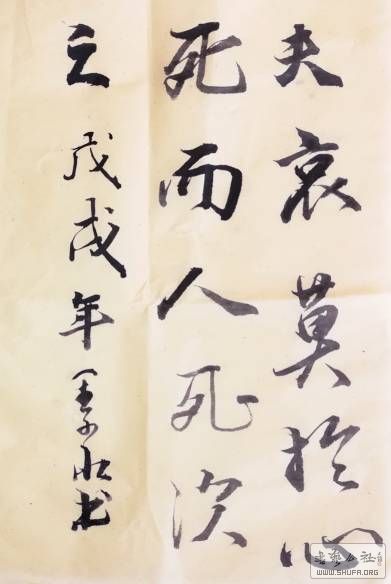 夫哀莫於心
死而人死次
之 戊戌年 書
WWW.SHUFA.ORG